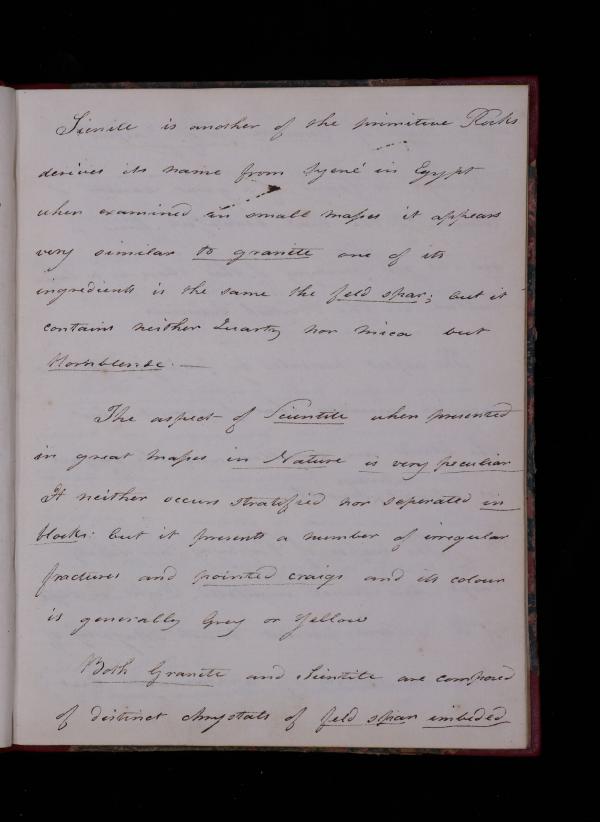 Sienite is another of the primitive Rocks
derives its name from Syené in Egypt
when examined in small masses it appears
very similar to granite one of its
ingredients is the same the feld spar; but it
contains neither Quartz nor mica but
Hornblende. —
The aspect of Scientite when presented
in great masses in Nature is very peculiar
It neither occurs stratified nor seperated in
blocks. but it presents a number of irregular
fractures and pointed craigs and its colour
is generally Grey or Yellow
Both Granite and Sientite are composed
of distinct chrystals of feld spar imbeded